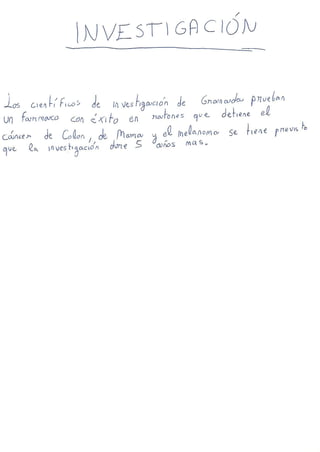 INVESTIGACIÓN
Los científicos de investigación de Granada prueban
un farmaco con éxito en ratones que detiene el
cáncer de Colon, de Mama y el melanoma se tiene previsto
que la investigación dure 5 años mas.